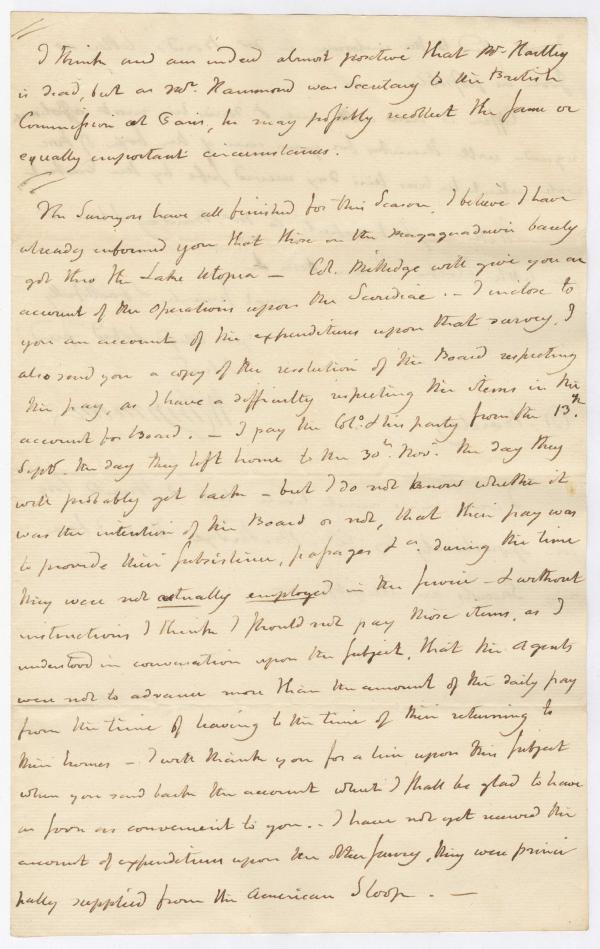 I think and am indeed almost positive that Mr Hartley
is dead, but as Mr. Hammond was Secretary to the British
Commission at Paris, he may possibly recollect the same or
equally important circumstances.
The Surveyors have all finished for this Season, I believe I have
already informed you that those on the Magaguadavic barely
got thro the Lake Utopia — Col. Millidge will give you an
account of the operations upon the Scoudiac. — I inclose to
you an account of the expenditures upon that survey, I
also send you a copy of the resolution of the Board respecting
the pay, as I have a difficulty respecting the items in the
account for Board. — I pay the Colo. & his party from the 13th.
Septr. the day they left home to the 30th. Novr. the day they
will probably get back — but I do not know whether it
was the intention of the Board or not, that their pay was
to provide their subsistence, passages &a. during the time
they were not actually employed in the service — & without
instructions I think I should not pay those items, as I
understood in conversation upon the subject, that the Agents
were not to advance more than the amount of the daily pay
from the time of leaving to the time of their returning to
their homes — I will thank you for a line upon this subject
when you send back the account which I shall be glad to have
as soon as convenient to you. — I have not yet received the
account of expenditures upon the other survey, they were princi
pally supplied from the American Sloop. —